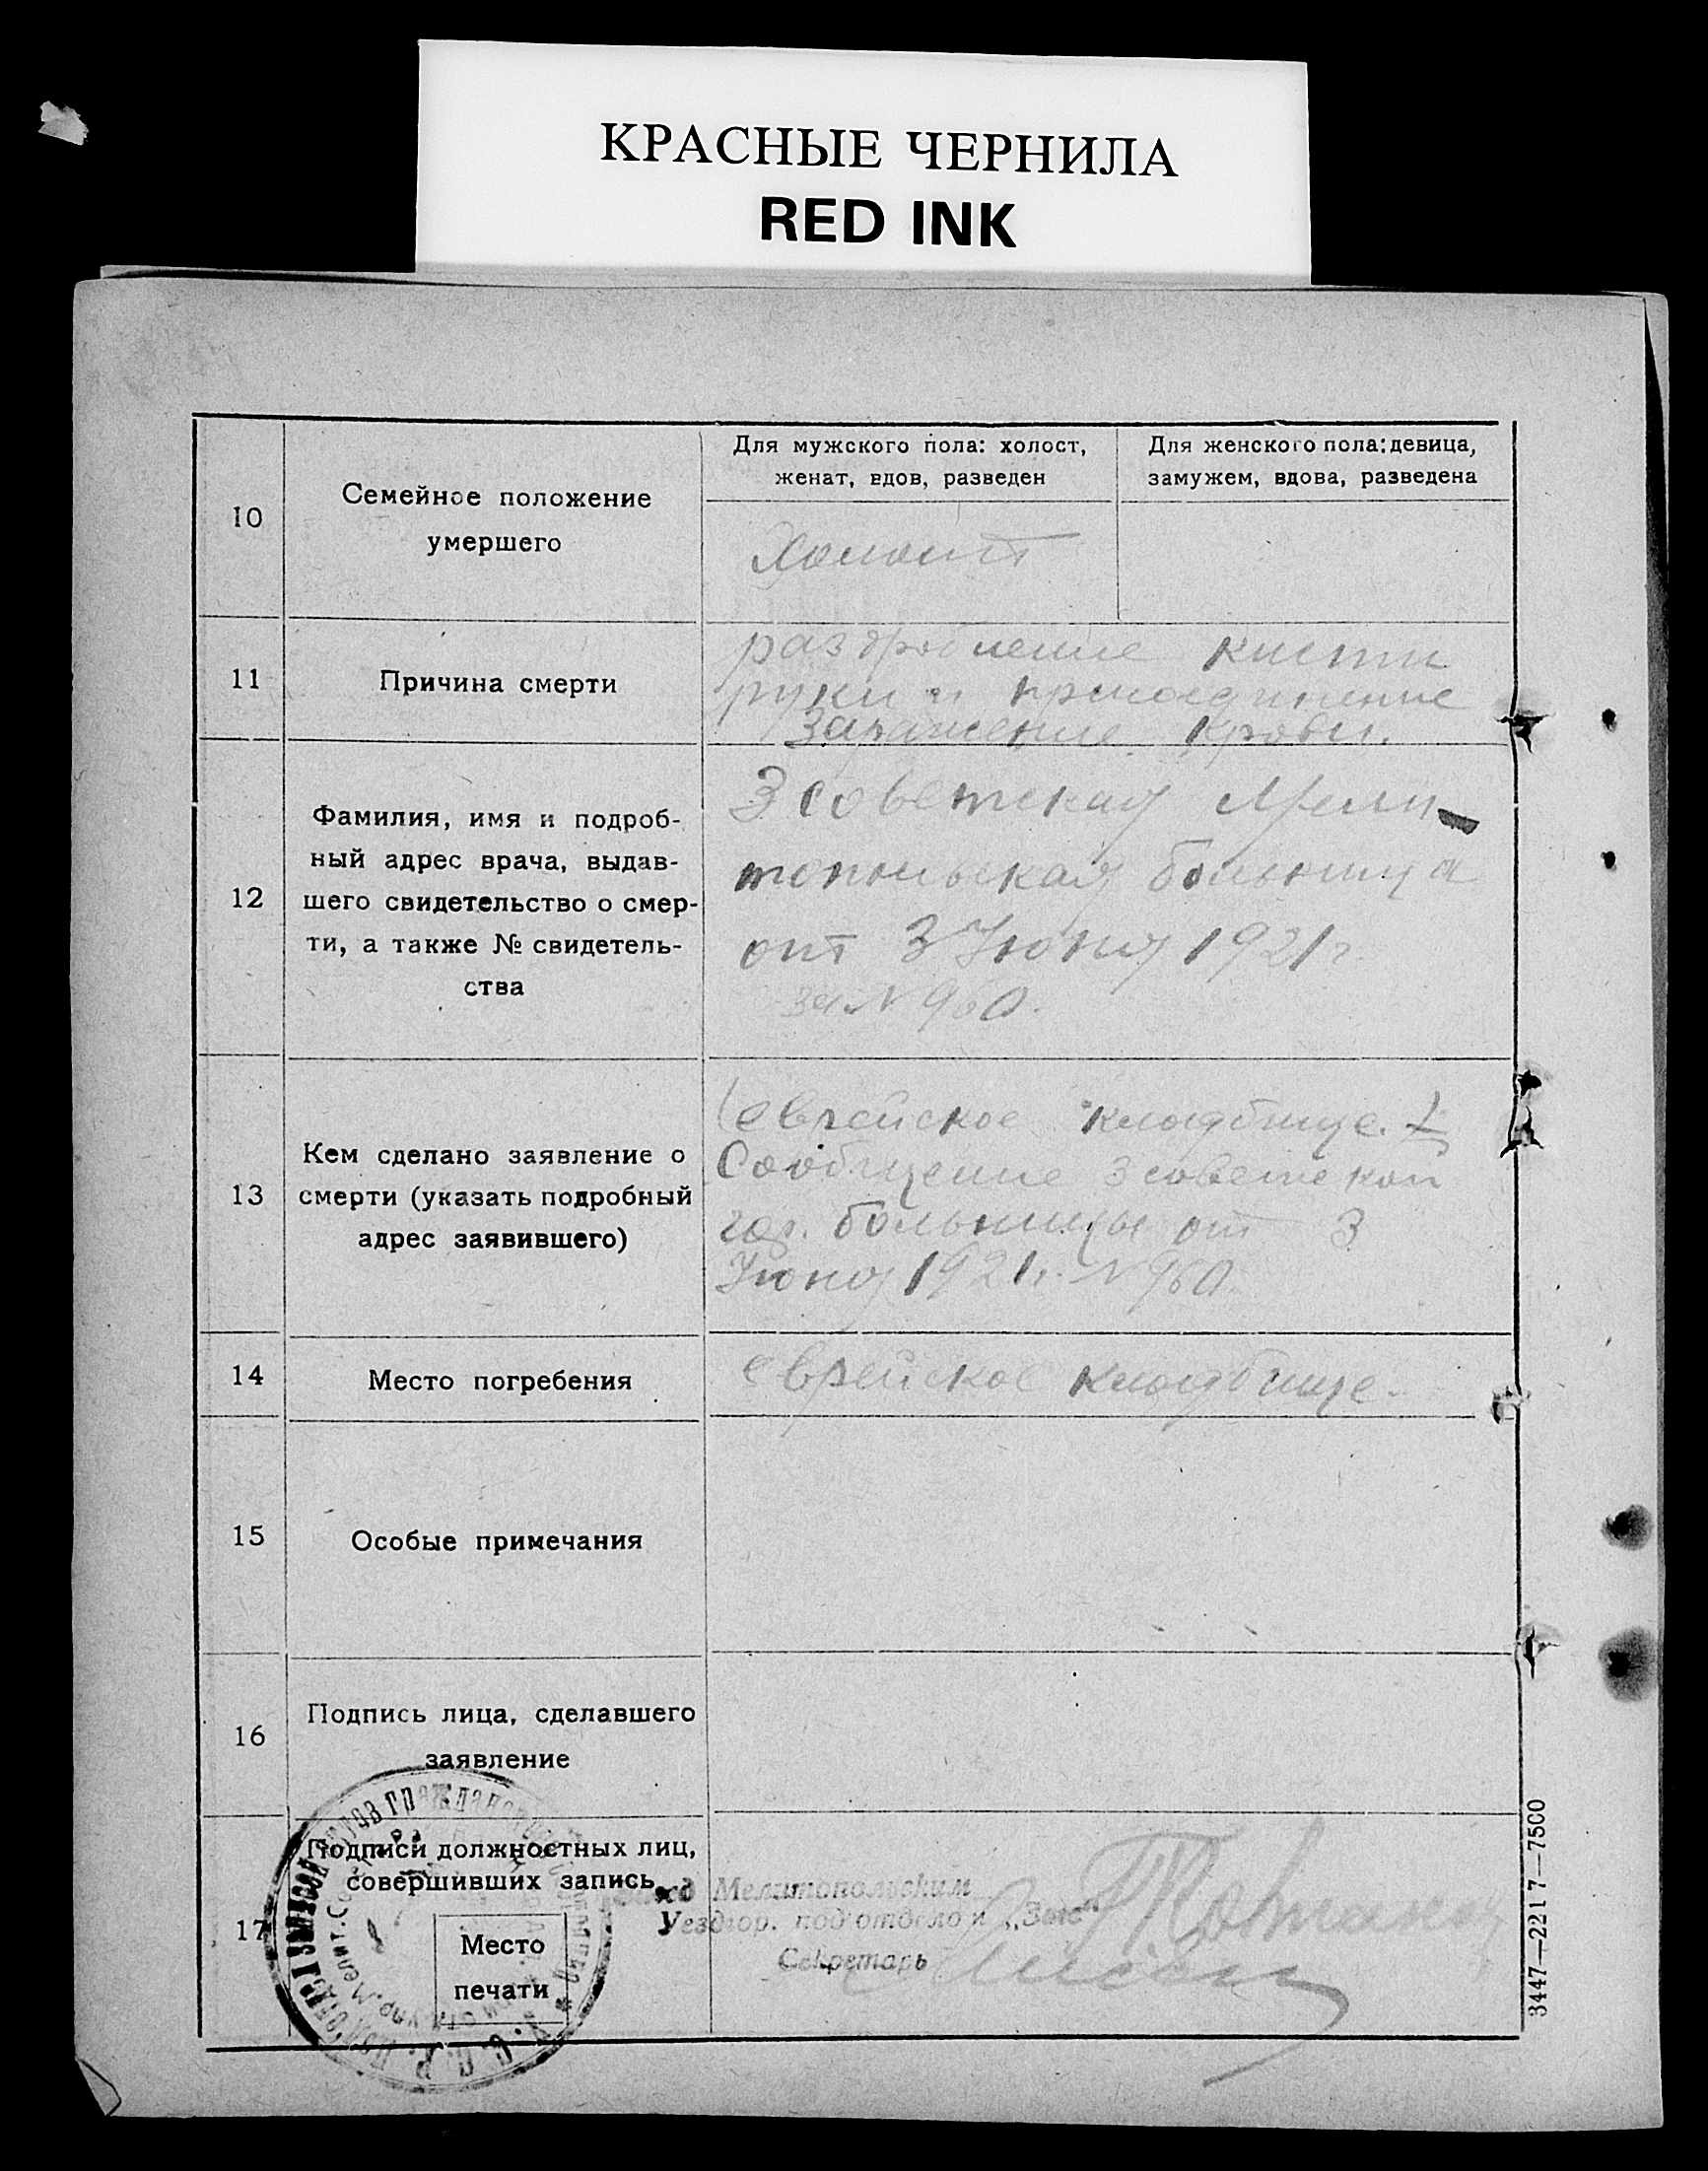 КРАСНЫЕ ЧЕРНИЛА
RED INK
10
Семейное положение
умершего
Для мужского пола: холост,
женат, вдов, разведен
Для женского пола: девица,
замужем, вдова, разведена
Холост
11
Причина смерти
раздробление кисти
руки и присоединение
заражение крови.
12
Фамилия, имя и подроб-
ный адрес врача, выдав-
шего свидетельство о смер-
ти, а также № свидетель-
ства
3 советская Мели-
топольская больница
от 3 Июня 1921 г.
за N 960.
13
Кем сделано заявление о
смерти (указать подробный
адрес заявившего)
(еврейское кладбище.)
Сообщение 3 советской
гор. больницы от 3
Июня 1921 г. N 960.
14
Место погребения
еврейское кладбище.
15
Особые примечания
16
Подпись лица, сделавшего
заявление
17
Подписи должностных лиц,
совершивших запись.
Место
печати
Мелитопольским
Уездгор. под'отделом „Загс"
Секретарь
3447—221 7—7500